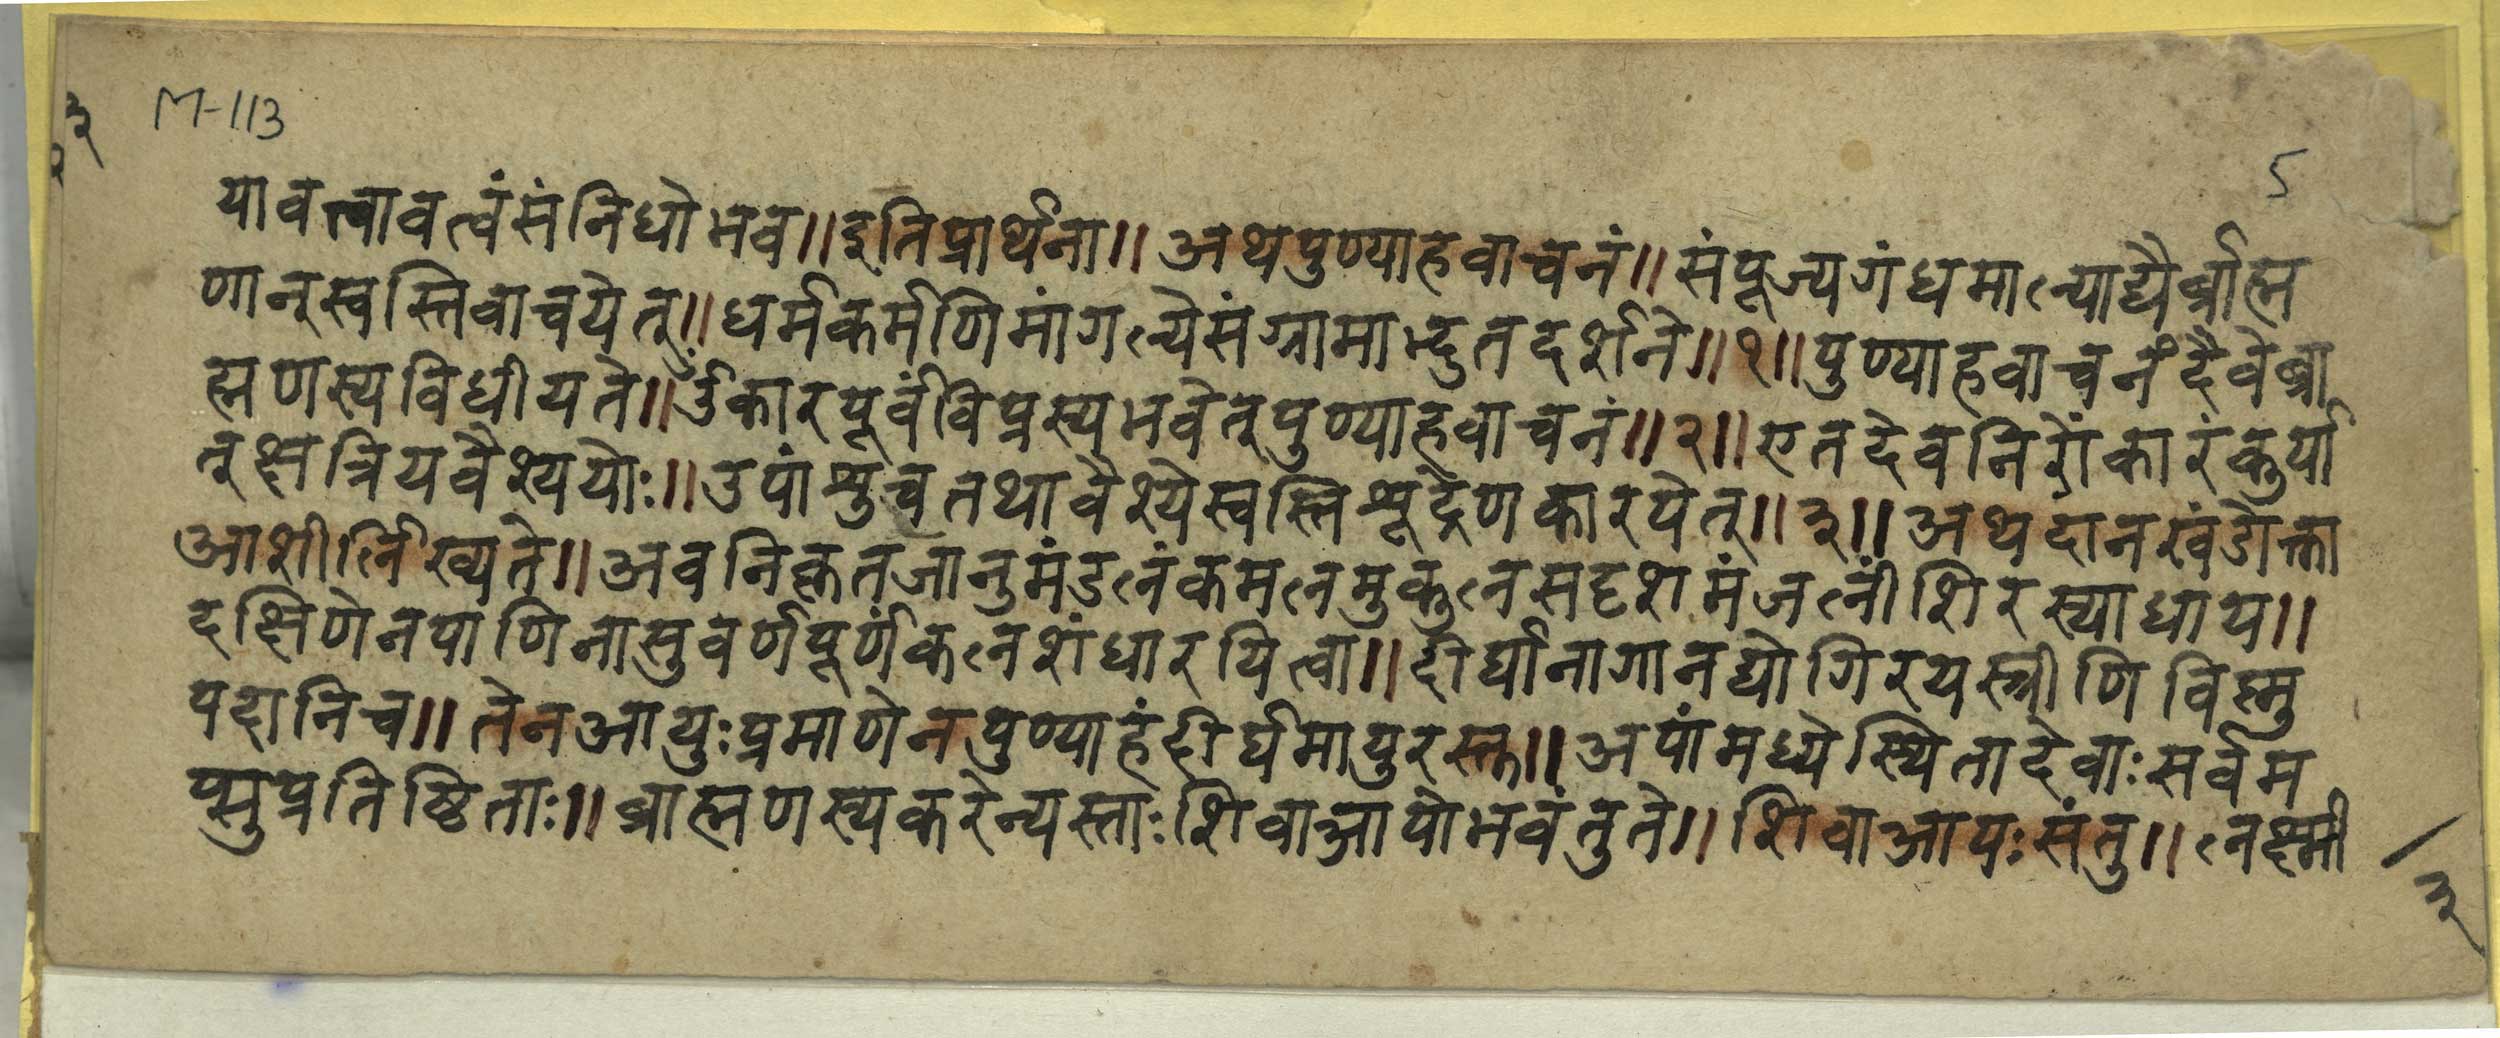 M-113
५
यावत्त्वावत्वंसंनिधोभव॥इतिप्रार्थना॥अथपुण्याहवाचनं॥संपूज्यगंधमाल्याद्यैर्ब्राह्म
णान्स्वस्तिवाचयेत्॥धर्मकर्मणिमांगल्येसंग्रामाद्भुतदर्शने॥१॥पुण्याहवाचनंदैवेब्रा
ह्मणस्यविधीयते॥ॐकारपूर्वंविप्रस्यभवेत्पुण्याहवाचनं॥२॥एतदेवनिरोंकारंकुर्या
त्क्षत्रियवैश्ययोः॥उपांश्रुचतथावैश्येस्वस्तिश्रूद्रेणकारयेत्॥३॥अथदानखंडोक्ता
आशीर्लिख्यते॥अवनिकृतजानुमंडलंकमलमुकुलसदृशमंजलींशिरस्याधाय॥
दक्षिणेनपाणिनासुवर्णपूर्णकलशंधारयित्वा॥दीर्घानागानद्योगिरयस्त्रीणिविष्णु
पदानिच॥तेनआयुःप्रमाणेनपुण्याहंदीर्घमायुरस्तु॥अपांमध्येस्थितादेवाःसर्वम
प्सुप्रतिष्ठिताः॥ब्राह्मणस्यकरेन्यस्ताःशिवाआपोभवंतुते॥शिवाआपःसंतु॥लक्ष्मी
३